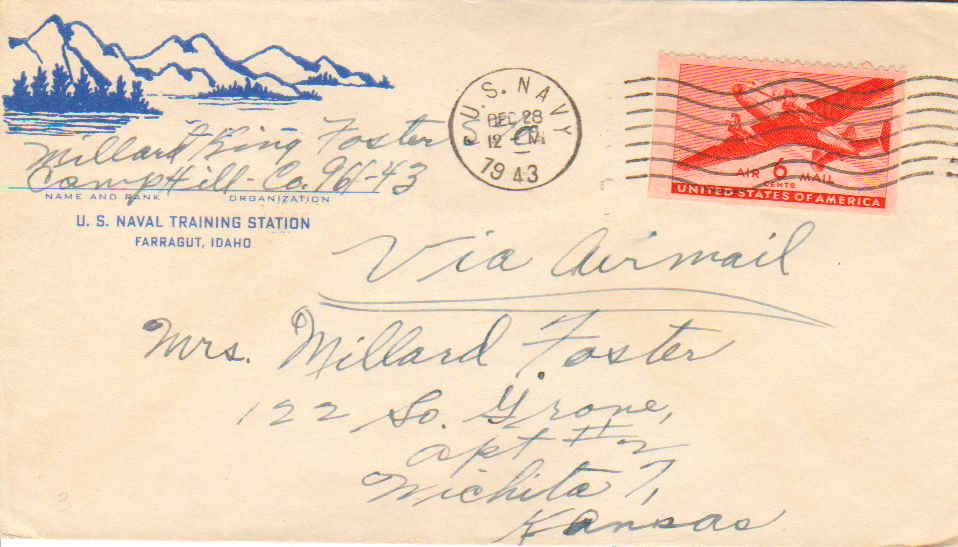 Millard King Foster
Camp Hill - Co. 961-43
NAME AND RANK ORGANIZATION
U. S. NAVAL TRAINING STATION
FARRAGUT, IDAHO
U.S. NAVY
DEC 28
12 M
1943
AIR 6 MAIL
CENTS
UNITED STATES OF AMERICA
Via Airmail
Mrs. Millard Foster
122 So. Grove,
apt #2
Wichita 7,
Kansas